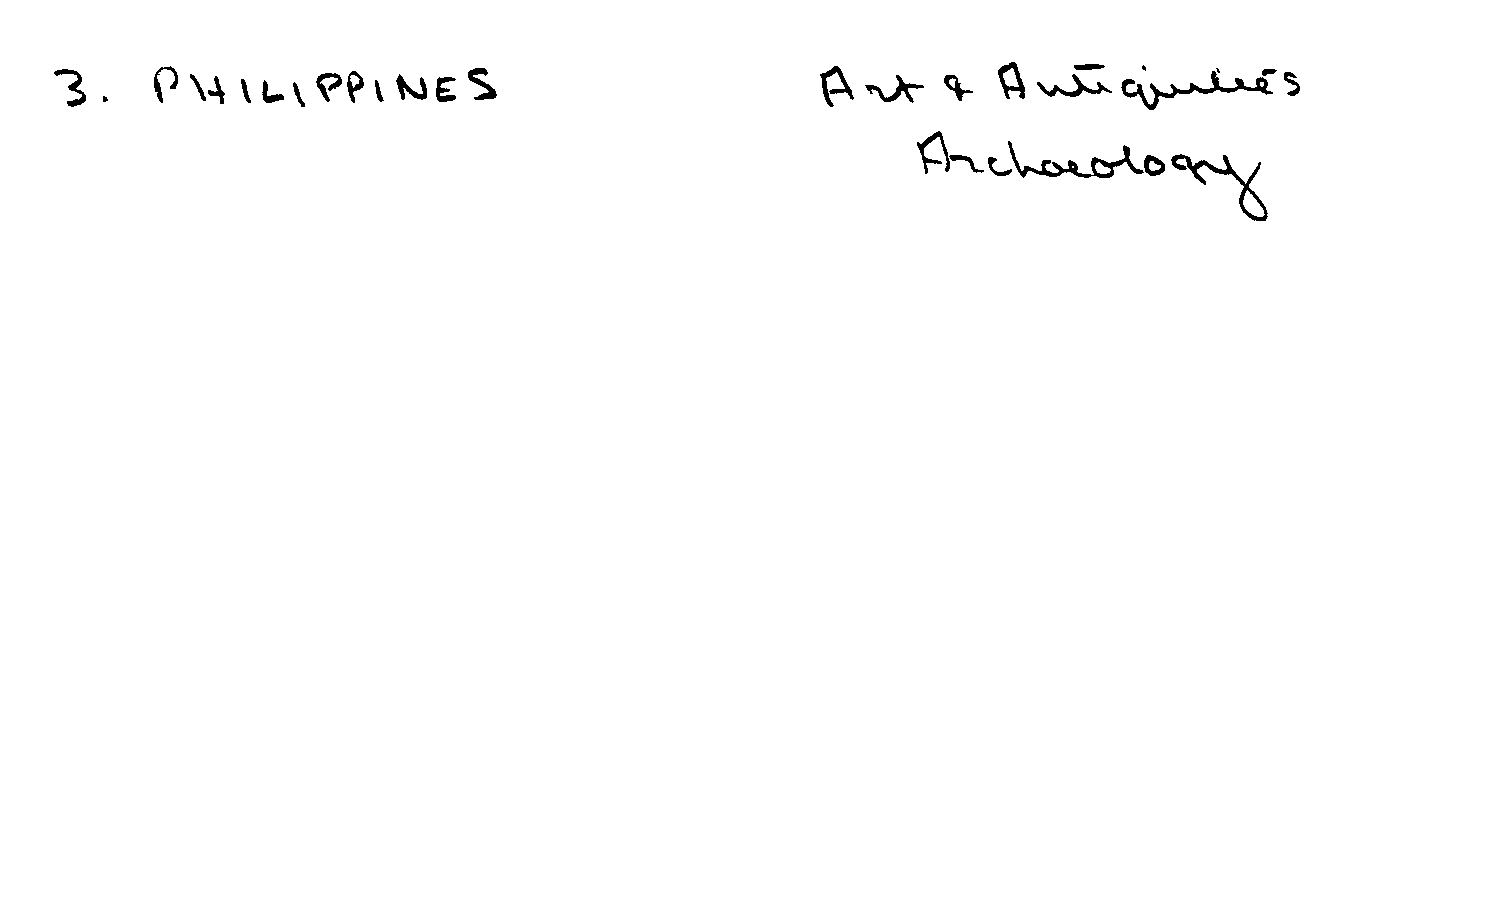 3. PHILIPPINES Art & Antiquities
Archaeology